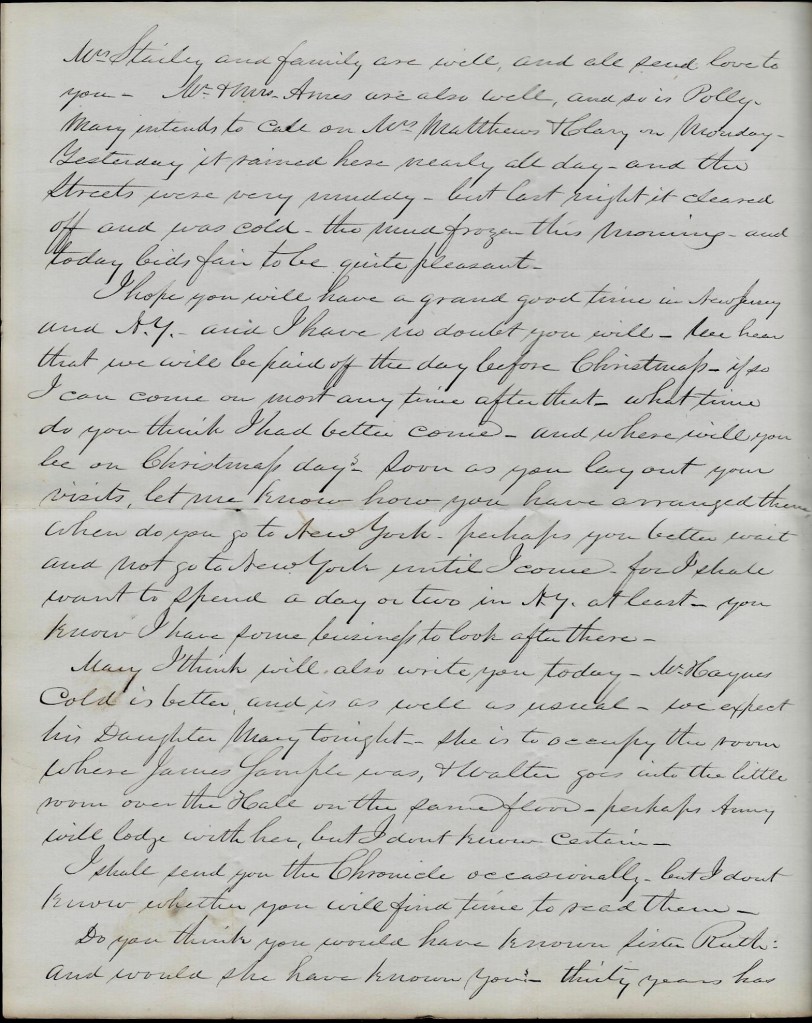 Mrs Stailey and family are well, and all send love to
you - Mr. & Mrs. Ames are also well, and so is Polly.
Mary intends to call on Mrs Matthews & Clary on Monday -
Yesterday it rained here nearly all day - and the
streets were very muddy - but last night it cleared
off and was cold - the mud froze this morning - and
today bids fair to be quite pleasant -
I hope you will have a grand good time in New Jersey
and N.Y. - and I have no doubt you will - We hear
that we will be paid off the day before Christmass - if so
I can come on most any time after that - what time
do you think I had better come - and where will you
be on Christmass day? - Soon as you lay out your
visits, let me know how you have arranged them,
when do you go to New York - perhaps you better wait
and not go to New York until I come - for I shall
want to spend a day or two in N.Y. at least - you
know I have some business to look after there -
Mary I think will also write you today - Mr. Haynes
Cold is better, and is as well as usual - we expect
his Daughter Mary tonight - she is to occupy the room
where James Sample was, & Walter goes into the little
room over the Hall on the same floor - perhaps Anny
will lodge with her, but I dont know certain -
I shall send you the Chronicle occasionally - but I dont
know whether you will find time to read them -
Do you think you would have known sister Ruth?
and would she have known you? - thirty years has